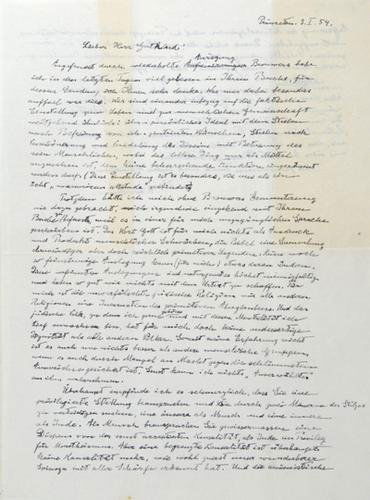 Princeton. 3. I. 54.
Lieber Herr Gutkind!
Angefeuert durch wiederholte Anregung Brouwers habe
ich in den letzten Tagen viel gelesen in Ihrem Buche, für
dessen Sendung ich Ihnen sehr danke. Was mir dabei besonders
auffiel war dies. Wir sind einander inbezug auf die faktische
Einstellung zum Leben und zur menschlichen Gemeinschaft
weitgehend ähnlich
Trotzdem hätte ich mich ohne Brouwers Ermunterung
nie dazu gebracht, mich eingehend mit Ihrem
Buche zu befassen, weil es in einer für mich unzugänglichen Sprache
geschrieben ist. Das Wort Gott ist für mich nichts als Ausdruck
und Produkt menschlicher Schwächen, die Bibel eine Sammlung
ehrwürdiger aber doch reichlich primitiver Legenden. Keine noch
so feinsinnige Auslegung kann (für mich) etwas daran ändern.
Diese verfeinerten Auslegungen sind naturgemäss höchst mannigfaltig
und haben so gut wie nichts mit dem Urtext zu schaffen. Für
mich ist die unverfälschte jüdische Religion wie alle anderen
Religionen eine Incarnation des primitiven Aberglaubens. Und das
jüdische Volk, zu dem ich gerne gehöre und mit dessen Mentalität ich
tief verwachsen bin, hat für mich doch keine andersartige
Dignität als alle anderen Völker. Soweit meine Erfahrung reicht
ist es auch um nichts besser als andere menschliche Gruppen
wenn es auch durch Mangel an Macht gegen die schlimmsten
Auswüchse gesichert ist. Sonst kann ich nichts Auserwähltes
an ihm wahrnehmen.
Überhaupt empfinde ich es schmerzlich, dass Sie eine
privilegierte Stellung beanspruchen und sie durch zwei Mauern des Stolzes
zu verteidigen suchen, eine äussere als Mensch und eine innere
als Jude. Als Mensch beanspruchen Sie gewissermassen einen
Dispens von der sonst acceptierten Kausalität, als Jude ein Privileg
für Monotheismus. Aber eine begrenzte Kausalität ist überhaupt
keine Kausalität mehr, wie wohl zuerst unser wunderbarer
Spinoza mit aller Schärfe erkannt hat. Und die animistische